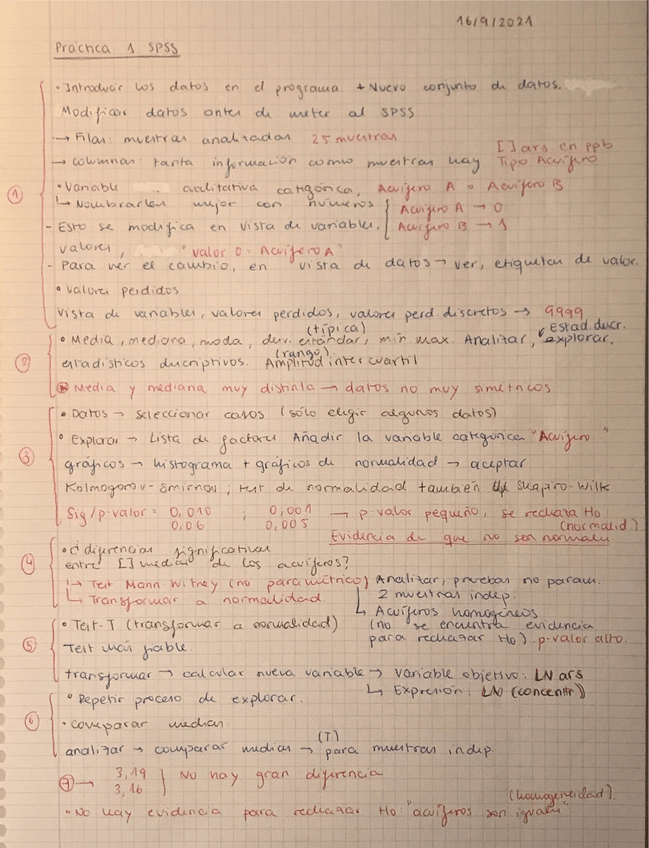 16/9/2021
Práctica 1 SPSS
• Introducir los datos en el programa + Nuevo conjunto de datos.
Modificar datos antes de meter al SPSS
→ Filas: muestras analizadas 25 muestras
[ ] ars en ppb
→ columnas: tanta información como muestras hay Tipo Acuífero
① • Variable cualitativa categórica, Acuífero A o Acuífero B
↳ Nombrarlas mejor con números { Acuífero A → 0
- Esto se modifica en vista de variables, Acuífero B → 1
valores, "valor 0 = Acuífero A"
- Para ver el cambio, en vista de datos → ver, etiquetas de valor.
• valores perdidos
Vista de variables, valores perdidos, valores perd. discretos → 9999
(típica) Estad. descr.
• Media, mediana, moda, desv. estándar, min max. Analizar, explorar,
(rango)
② estadísticos descriptivos. Amplitud intercuartil
⊗ Media y mediana muy distinta → datos no muy simétricos
• Datos → seleccionar casos (sólo elegir algunos datos)
• Explorar → Lista de factores Añadir la variable categórica "Acuífero"
③ gráficos → histograma + gráficos de normalidad → aceptar
Kolmogorov-Smirnov; test de normalidad también Shapiro-Wilk
Sig/p-valor = 0,010 ; 0,001 → p valor pequeño, se rechaza Ho
0,06 0,005 (normalid)
Evidencia de que no son normales
④ • ¿diferencias significativas
entre [ ] medias de los acuíferos?
↳ Test Mann. Witney (no paramétrico) Analizar, pruebas no param.
↳ Transformar a normalidad. 2 muestras indep.
↳ Acuíferos homogéneos
• Test-T (transformar a normalidad) (no se encuentra evidencia
⑤ Test más fiable. para rechazar Ho) p-valor alto.
transformar → calcular nueva variable → Variable objetivo: LN ars
↳ Expresión: LN (concentr)
• Repetir proceso de explorar.
⑥ • comparar medias
(T)
analizar → comparar medias → para muestras indep.
⑦ → 3,19
3,16 } No hay gran diferencia
(homogeneidad).
• No hay evidencia para rechazar Ho "acuíferos son iguales"